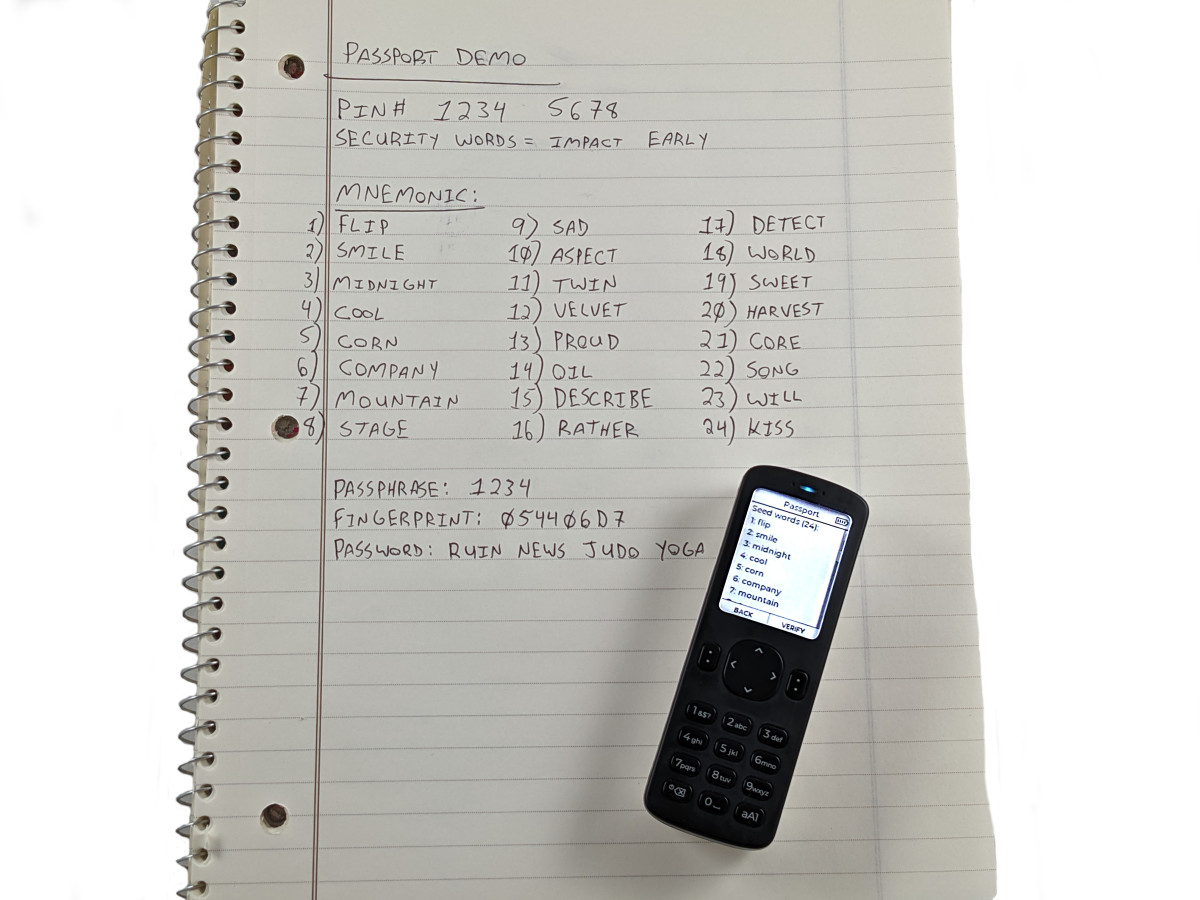 PASSPORT DEMO
PIN# 1234 5678
SECURITY WORDS = IMPACT EARLY
MNEMONIC:
1) FLIP 9) SAD 17) DETECT
2) SMILE 10) ASPECT 18) WORLD
3) MIDNIGHT 11) TWIN 19) SWEET
4) COOL 12) VELVET 20) HARVEST
5) CORN 13) PROUD 21) CORE
6) COMPANY 14) OIL 22) SONG
7) MOUNTAIN 15) DESCRIBE 23) WILL
8) STAGE 16) RATHER 24) KISS
PASSPHRASE: 1234
FINGERPRINT: 054406D7
PASSWORD: RUIN NEWS JUDO YOGA
Passport
Seed words (24):
1: flip
2: smile
3: midnight
4: cool
5: corn
6: company
7: mountain
BACK VERIFY
1&$? 2abc 3def
4ghi 5jkl 6mno
7pqrs 8tuv 9wxyz
0 aA1